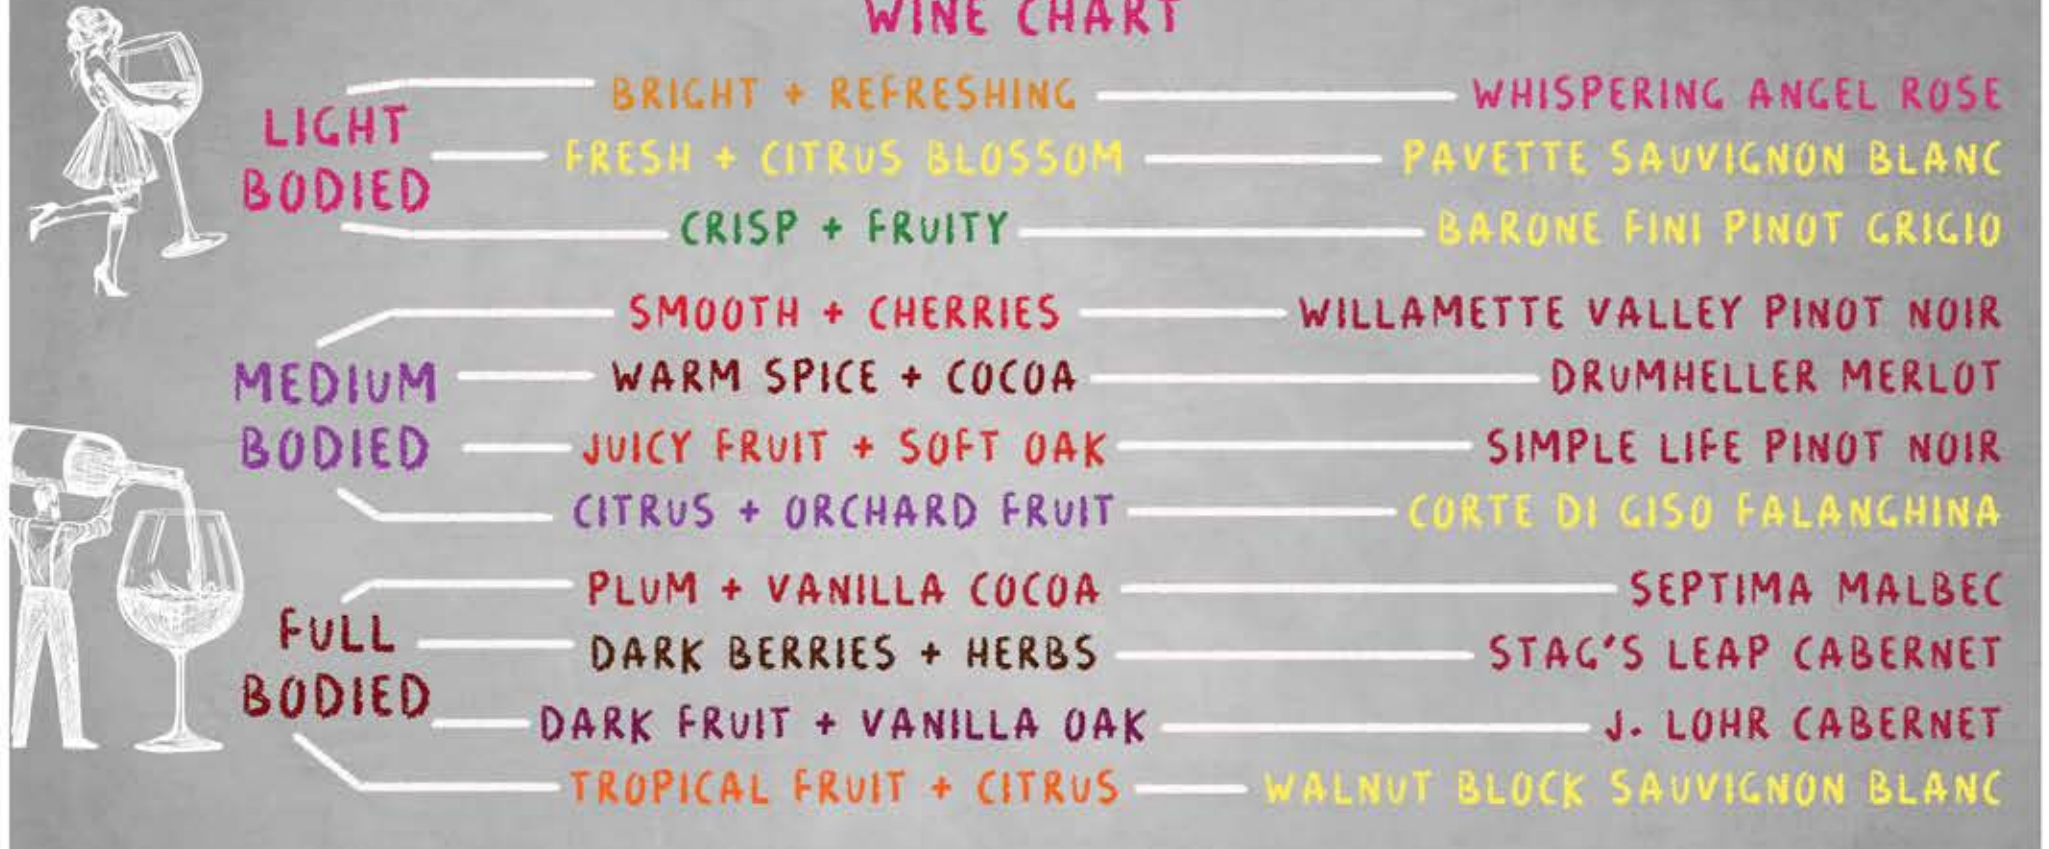 WINE CHART
LIGHT BODIED
BRIGHT + REFRESHING WHISPERING ANGEL ROSE
FRESH + CITRUS BLOSSOM PAVETTE SAUVIGNON BLANC
CRISP + FRUITY BARONE FINI PINOT GRIGIO
MEDIUM BODIED
SMOOTH + CHERRIES WILLAMETTE VALLEY PINOT NOIR
WARM SPICE + COCOA DRUMHELLER MERLOT
JUICY FRUIT + SOFT OAK SIMPLE LIFE PINOT NOIR
CITRUS + ORCHARD FRUIT CORTE DI GISO FALANGHINA
FULL BODIED
PLUM + VANILLA COCOA SEPTIMA MALBEC
DARK BERRIES + HERBS STAG'S LEAP CABERNET
DARK FRUIT + VANILLA OAK J. LOHR CABERNET
TROPICAL FRUIT + CITRUS WALNUT BLOCK SAUVIGNON BLANC